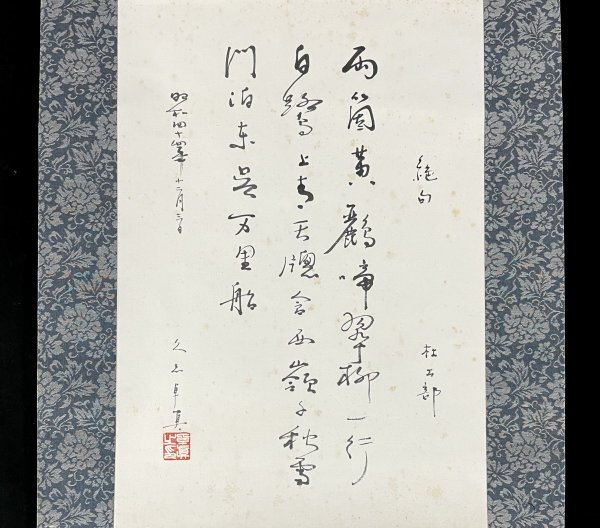 絶句 杜工部
両箇黄鸝啼翠柳一行
白鷺上青天牕含西嶺千秋雪
門泊東呉万里船
昭和四十四年十二月三日
久志卓真